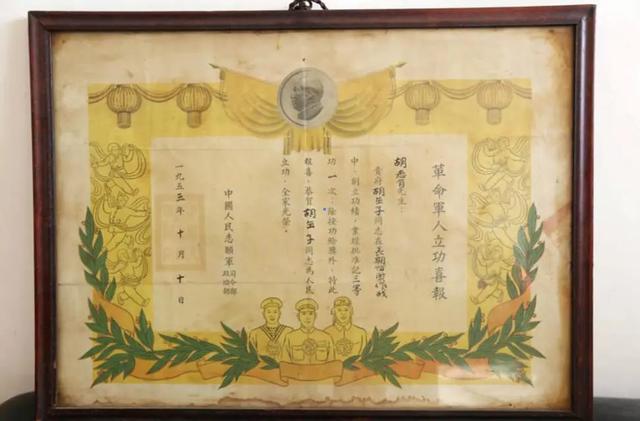 革命軍人立功喜報
胡先生：
貴府胡子同志在長期作戰
中，創立功績，業經批准記三等
功一次；除授功給獎外，特此
報喜，恭賀胡子同志為人民
立功，全家光榮。
中國人民志願軍司令部
政治部
一九五三年十月十日